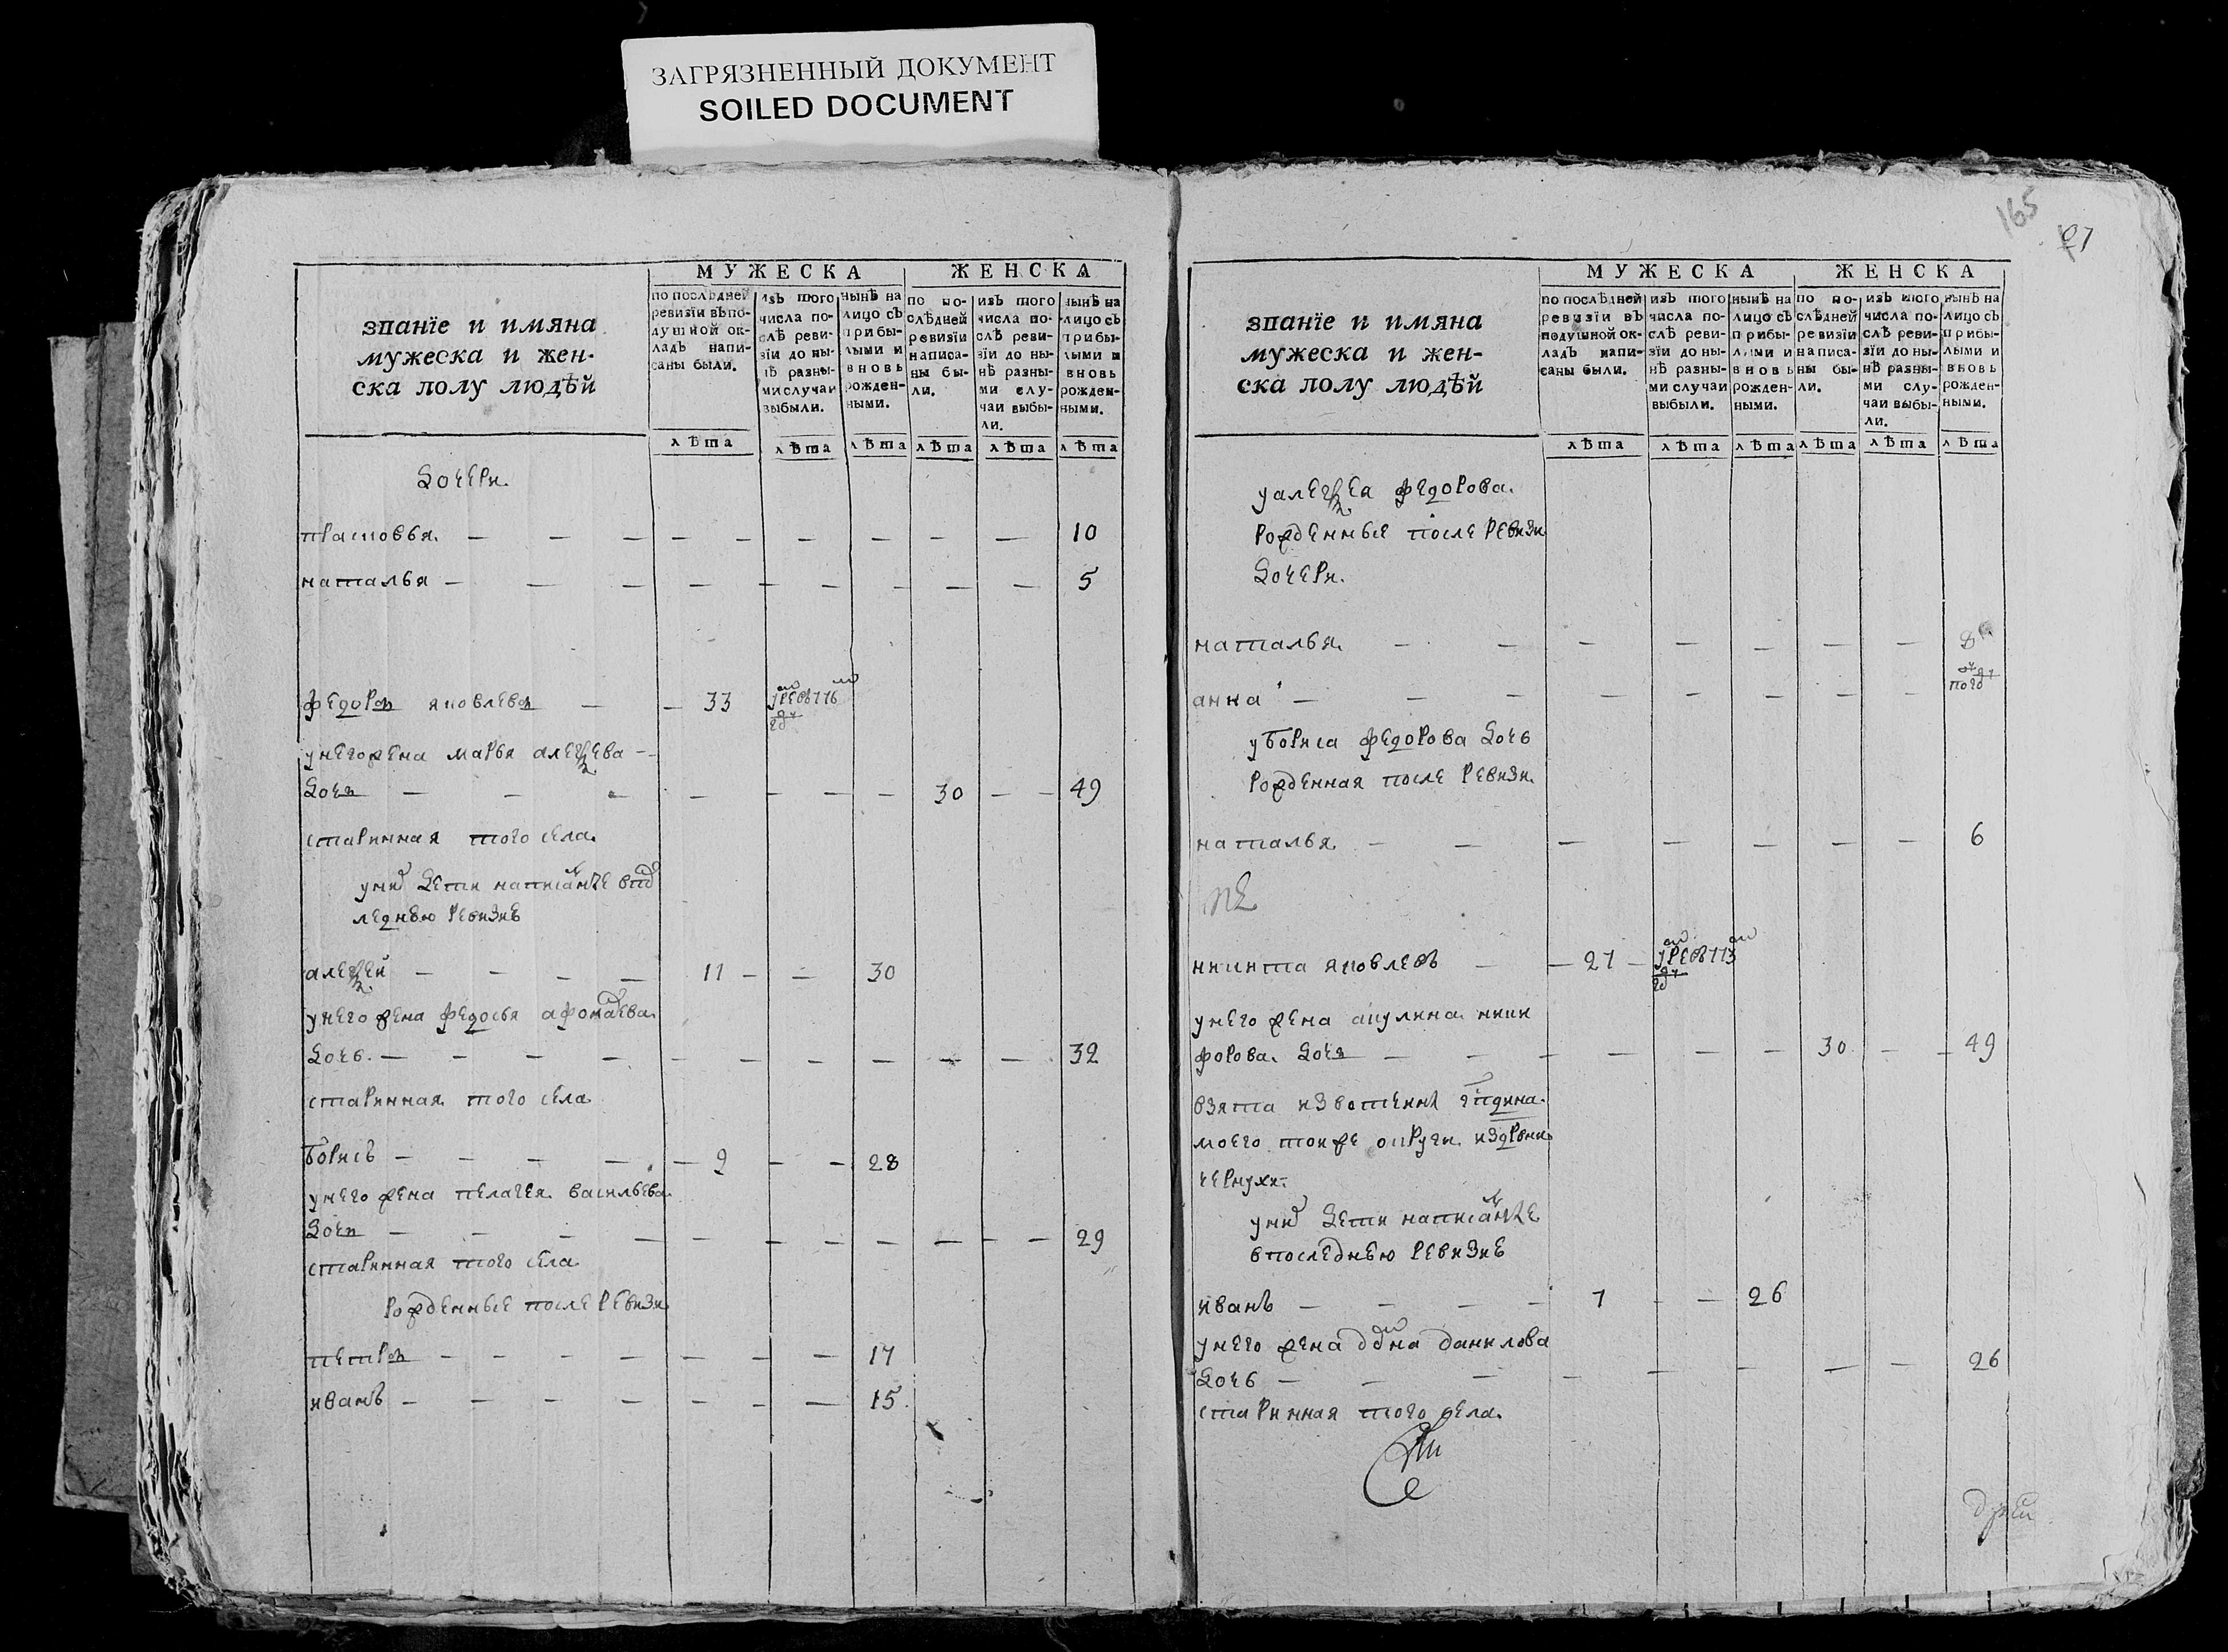 ЗАГРЯЗНЕННЫЙ ДОКУМЕНТ
SOILED DOCUMENT
165
званїе и имяна мужеска и женска полу людѣй
МУЖЕСКА
ЖЕНСКА
по послѣдней ревизїи въ подушной окладъ написаны были.
изъ того числа послѣ ревизїи до нынѣ разными случаи выбыли.
нынѣ на лицо съ прибылыми и вновь рожденными.
по послѣдней ревизїи написаны были.
изъ того числа послѣ ревизїи до нынѣ разными случаи выбыли.
нынѣ на лицо съ прибылыми и вновь рожденными.
лѣта лѣта лѣта лѣта лѣта лѣта
дочери
прасковья — 10
наталья — 5
федоръ яковлевъ — 33
унего жена марья алексеева
дочь — 30 — 49
старинная того села
уних дети написанные впос
леднею ревизию
алексей — 11 — 30
унего жена федосья афонасева
дочь — 32
старинная того села
борисъ — 9 — 28
унего жена пелагея васильева
дочь — 29
старинная того села
рожденные после ревизи
петръ — 17
иванъ — 15
званїе и имяна мужеска и женска полу людѣй
МУЖЕСКА
ЖЕНСКА
по послѣдней ревизїи въ подушной окладъ написаны были.
изъ того числа послѣ ревизїи до нынѣ разными случаи выбыли.
нынѣ на лицо съ прибылыми и вновь рожденными.
по послѣдней ревизїи написаны были.
изъ того числа послѣ ревизїи до нынѣ разными случаи выбыли.
нынѣ на лицо съ прибылыми и вновь рожденными.
лѣта лѣта лѣта лѣта лѣта лѣта
уалексея федорова
рожденные после ревизи
дочери
наталья
анна
убориса федорова дочь
рожденная после ревизи
наталья — 6
никита яковлевъ — 27
унего жена акулина ники
форова дочь — 30 — 49
взята извотчины
моего тоиже округи
чернухи
уних дети написанные
впоследнею ревизию
иванъ — 7 — 26
унего жена домна данилова
дочь — 26
старинная того села